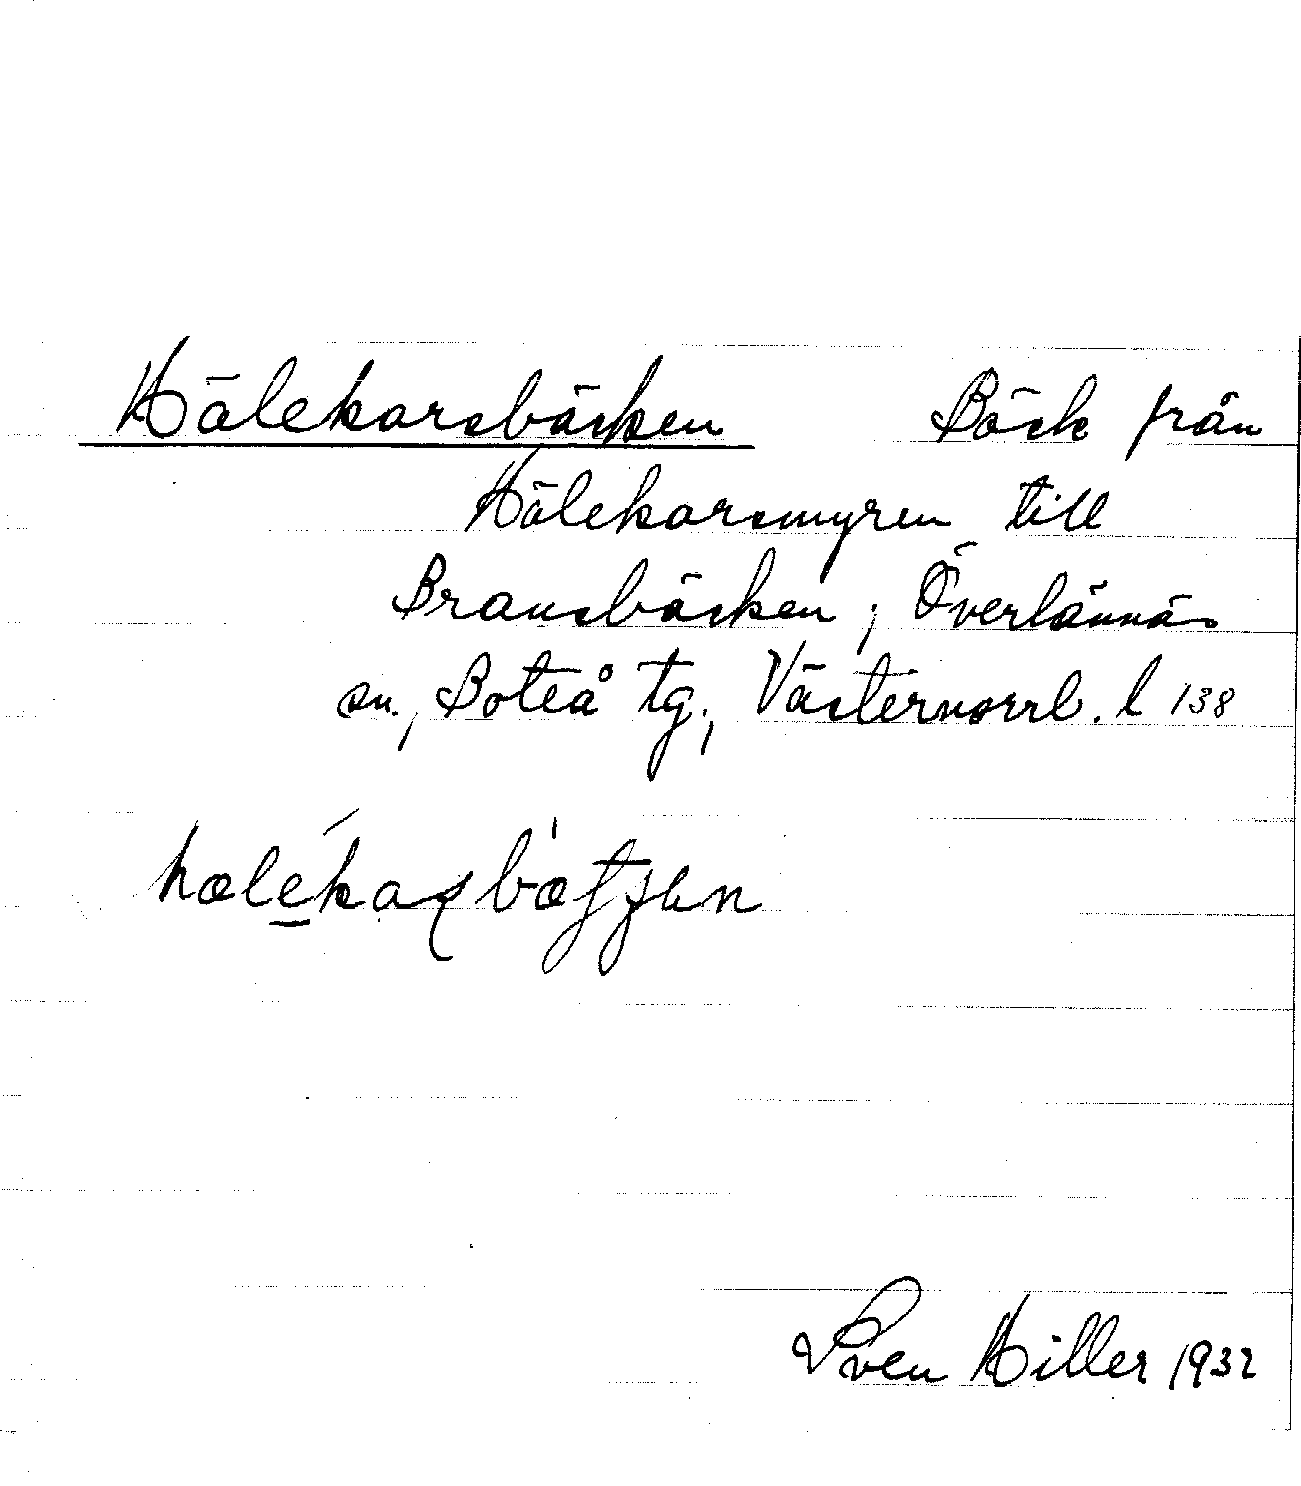 Hälekarsbäcken Bäck från
Hälekarsmyren till
Bransbäcken, Överlännäs
sn., Boteå tg., Västernorrl. l 138
Sven Hiller 1932